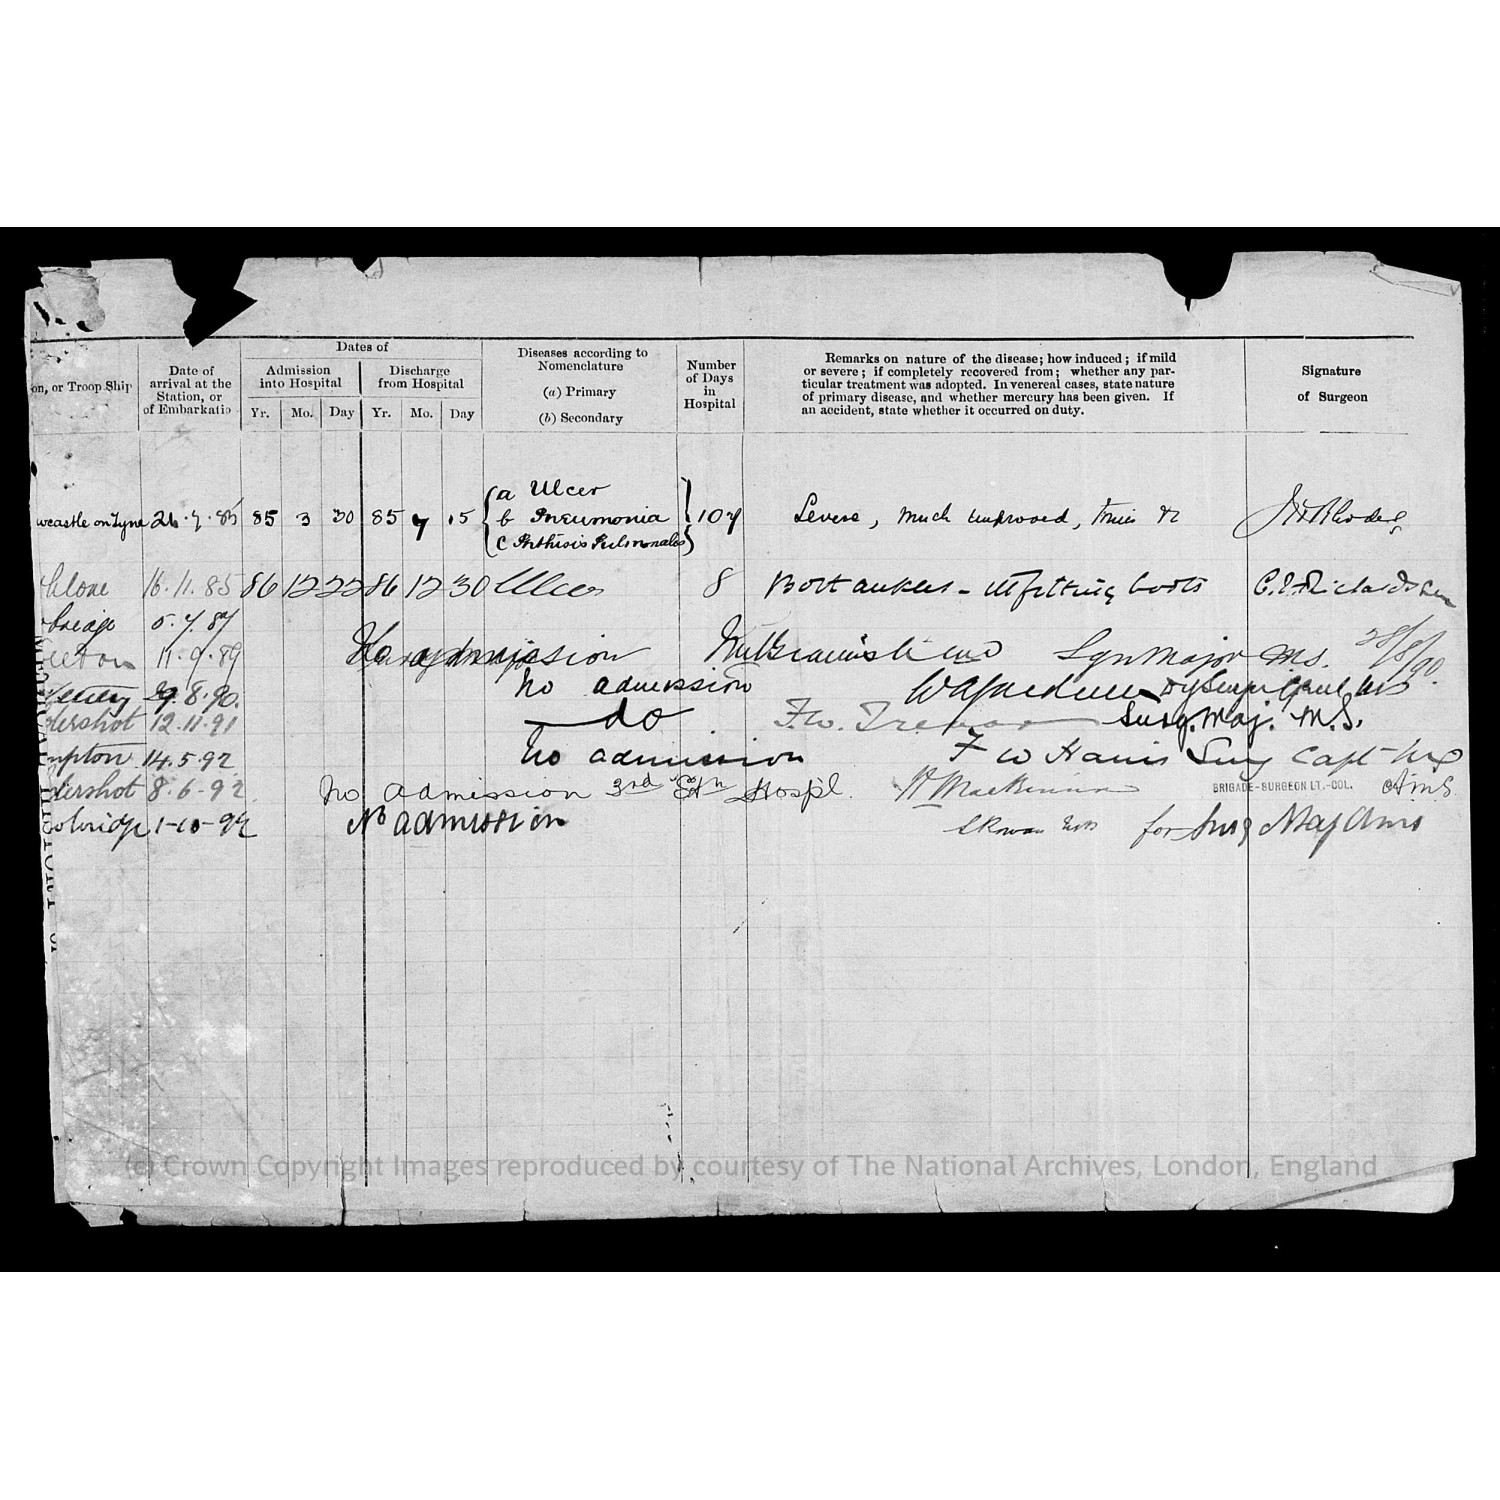 on, or Troop Ship
Date of arrival at the Station, or of Embarkatio
Dates of
Admission into Hospital
Discharge from Hospital
Yr. Mo. Day Yr. Mo. Day
Diseases according to Nomenclature
(a) Primary
(b) Secondary
Number of Days in Hospital
Remarks on nature of the disease; how induced; if mild
or severe; if completely recovered from; whether any par-
ticular treatment was adopted. In venereal cases, state nature
of primary disease, and whether mercury has been given. If
an accident, state whether it occurred on duty.
Signature of Surgeon
a Ulcer
wcastle on Tyne 85 3 30 85 7 15 b Pneumonia 107 Severe, much improved,
c Phthisis Pulmonales
hlone 16.11.85 86 12 22 86 12 30 Ulcer 8 Both ankles - Ill fitting boots C. Richardson
bridge 5.7.87
11.9.89 No admission Major M.S. 28/8/90.
29.8.90. No admission
dershot 12.11.91 do F.W. Trevor Surg. Maj. M.S.
mpton 14.5.92 No admission F W Harris Surg Capt
dershot 8.6-92 No admission 3rd Stn Hospl. W MacKinnon BRIGADE-SURGEON LT.-COL. A.M.S.
1-10-92 No admission for Surg Maj AMS
(c) Crown Copyright Images reproduced by courtesy of The National Archives, London, England